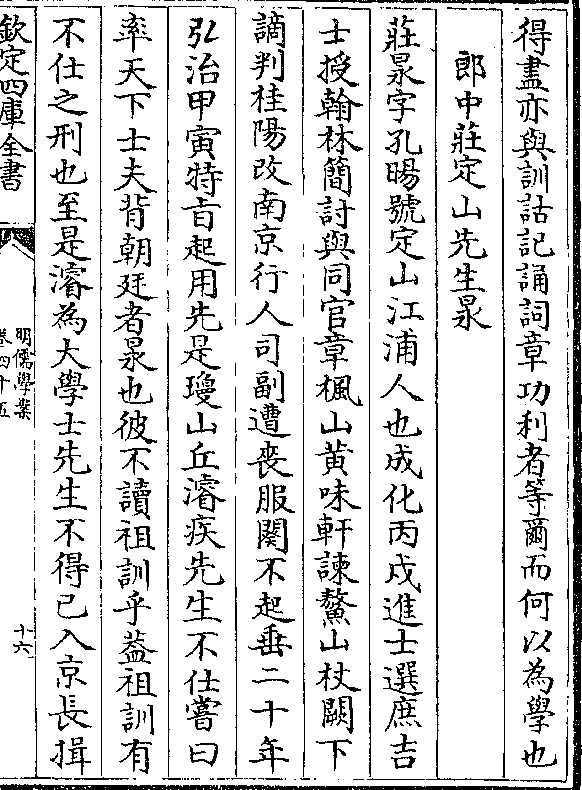 得盡亦與訓詁記誦詞章功利者等爾而何以為學也
郎中莊定山先生㫤
莊㫤字孔暘號定山江浦人也成化丙戌進士選庶吉
士授翰林簡討與同官章楓山黄味軒諫鰲山杖闕下
謫判桂陽改南京行人司副遭喪服闋不起垂二十年
弘治甲寅特㫖起用先是瓊山丘濬疾先生不仕嘗曰
率天下士夫背朝廷者㫤也彼不讀祖訓乎葢祖訓有
不仕之刑也至是濬為大學士先生不得已入京長揖
欽定四庫全書
明儒學案
卷四十五
十六